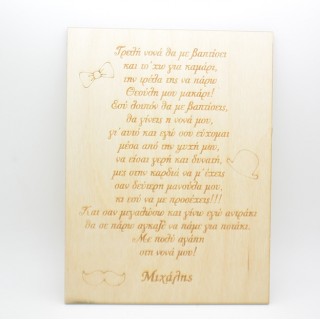 Τρελή νονά θα με βαπτίσει
και το 'χω για καμάρι,
την τρέλα της να πάρω
Θεούλη μου μακάρι!
Εσύ λοιπόν θα με βαπτίσεις,
θα γίνεις η νονά μου,
γι' αυτό και εγώ σου εύχομαι
μέσα από την ψυχή μου,
να είσαι γερή και δυνατή,
μες στην καρδιά να μ' έχεις
σαν δεύτερη μανούλα μου,
κι εσύ να με προσέχεις!!!
Και σαν μεγαλώσω και γίνω εγώ αντράκι
θα σε πάρω αγκαζέ να πάμε για ποτάκι.
Με πολύ αγάπη
στη νονά μου!
Μιχάλης